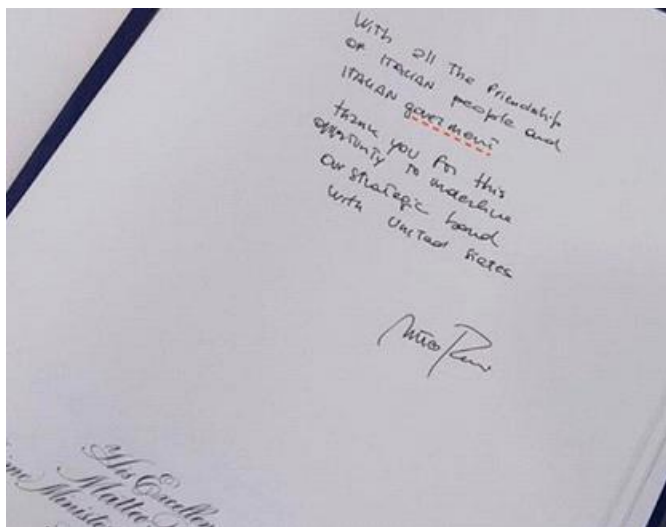 With all the friendship
of ITALIAN people and
ITALIAN goverment
thank you for this
opportunity to underline
our strategic bond
with United States
His Excellen
Matteo
ime Ministe